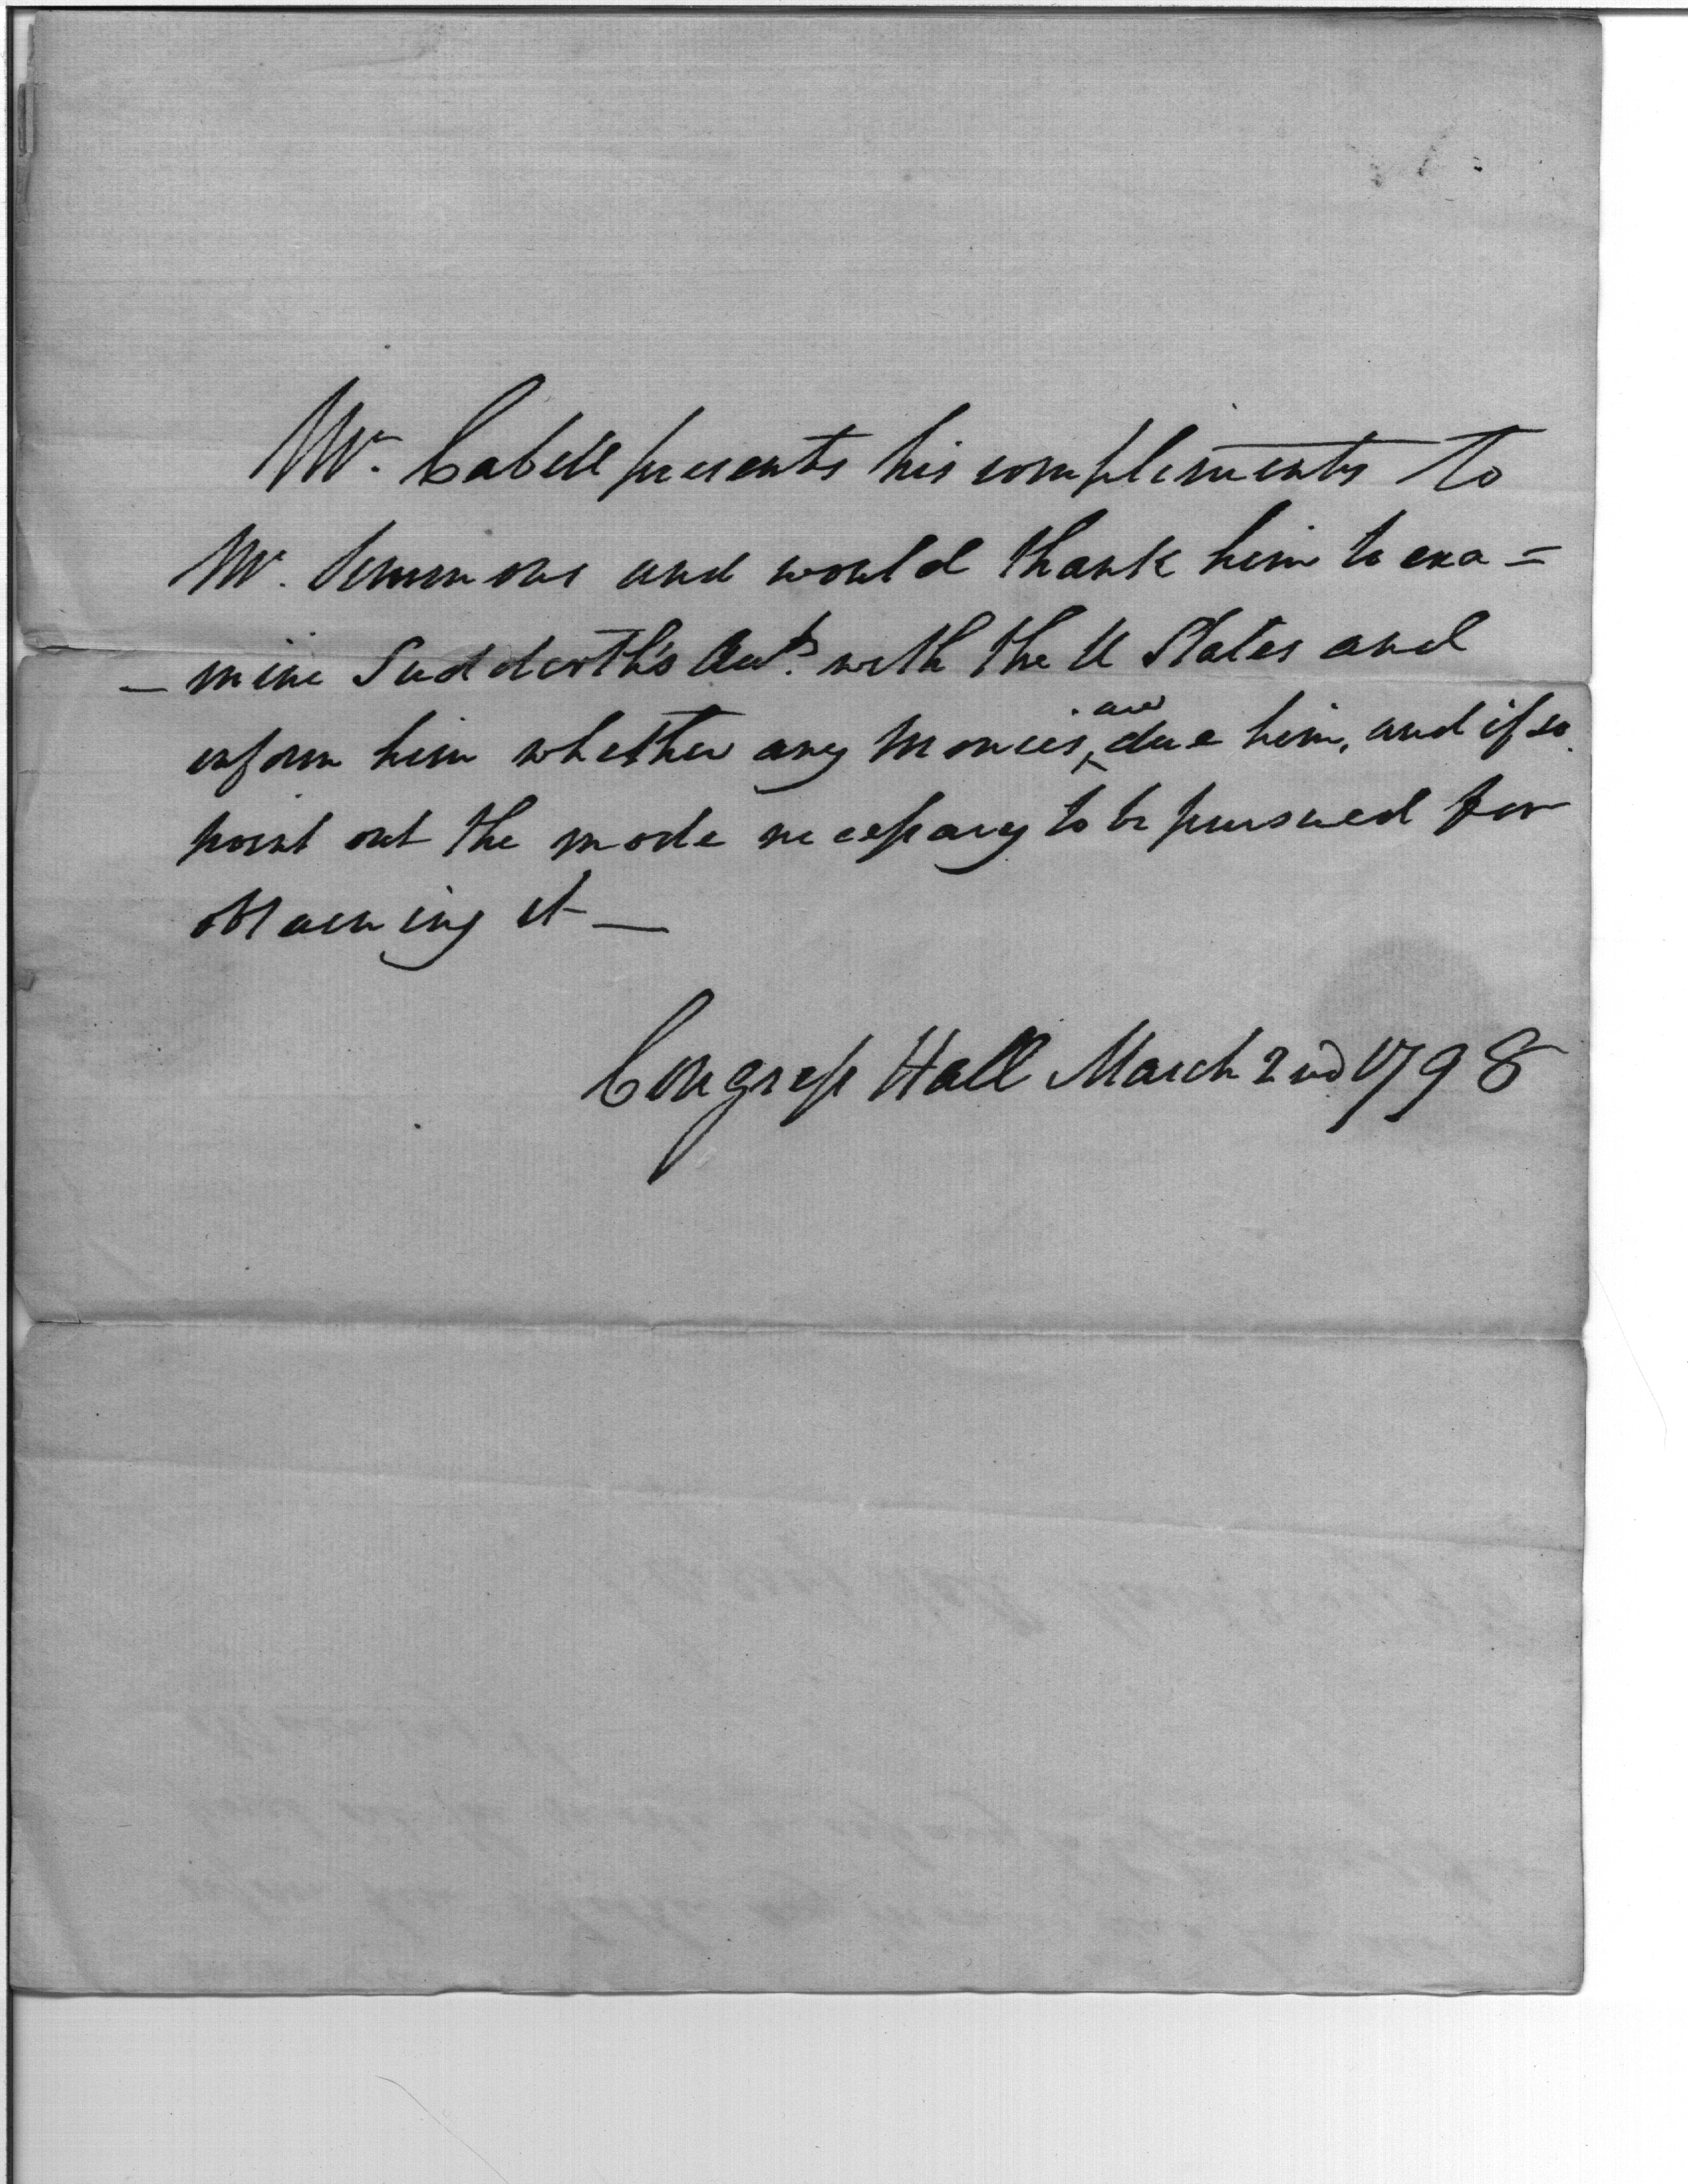 Mr. Cabell presents his compliments to
Mr. Simmons and would thank him to exa=
- mine Suddarth's Acts. with the U States and
inform him whether any monies are due him, and if so
point out the mode necessary to be pursued for
obtaining it —
Congress Hall March 2nd 1798